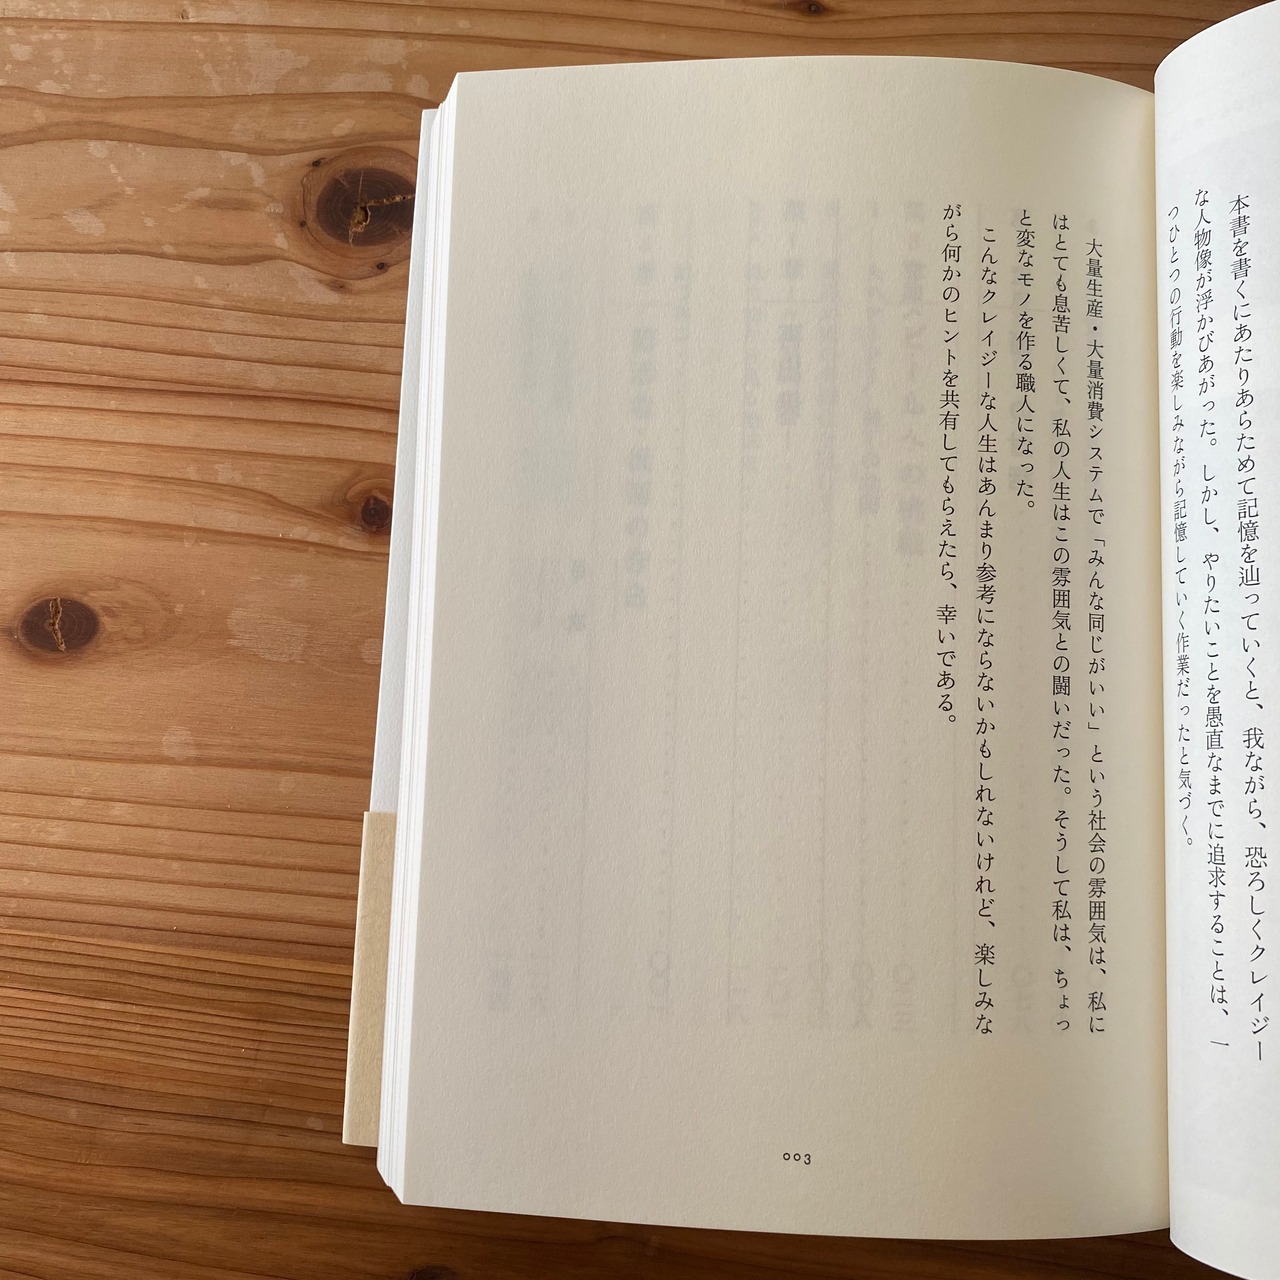 本書を書くにあたりあらためて記憶を辿っていくと、我ながら、恐ろしくクレイジー
な人物像が浮かびあがった。しかし、やりたいことを愚直なまでに追求することは、一
つひとつの行動を楽しみながら記憶していく作業だったと気づく。
大量生産・大量消費システムで「みんな同じがいい」という社会の雰囲気は、私に
はとても息苦しくて、私の人生はこの雰囲気との闘いだった。そうして私は、ちょっ
と変なモノを作る職人になった。
こんなクレイジーな人生はあんまり参考にならないかもしれないけれど、楽しみな
がら何かのヒントを共有してもらえたら、幸いである。
003